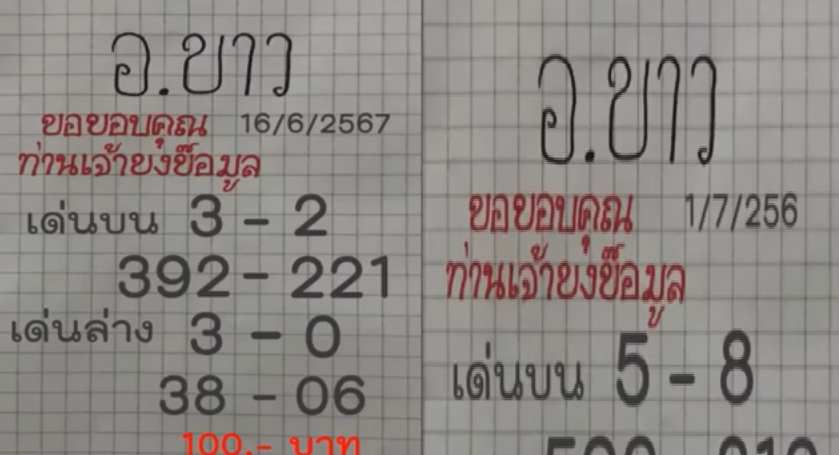 อ.ขาว
ขอขอบคุณ 16/6/2567
ท่านเจ้าของข้อมูล
เด่นบน 3 - 2
392 - 221
เด่นล่าง 3 - 0
38 - 06
100.- บาท
อ.ขาว
ขอขอบคุณ 1/7/256
ท่านเจ้าของข้อมูล
เด่นบน 5 - 8